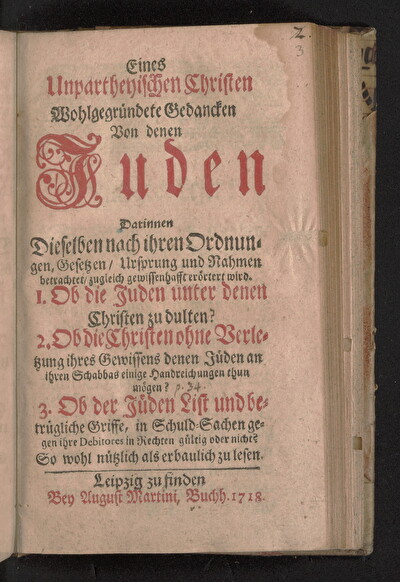 2.
3
Eines
Unpartheyischen Christen
Wohlgegründete Gedancken
Von denen
Juden
Darinnen
Dieselben nach ihren Ordnun-
gen, Gesetzen / Ursprung und Nahmen
betrachtet / zugleich gewissenhafft erörtert wird.
1. Ob die Juden unter denen
Christen zu dulten?
2. Ob die Christen ohne Verle-
tzung ihres Gewissens denen Jüden an
ihren Schabbas einige Handreichungen thun
mögen? p. 34.
3. Ob der Jüden List und be-
trügliche Griffe, in Schuld-Sachen ge-
gen ihre Debitores in Rechten gültig oder nicht?
So wohl nützlich als erbaulich zu lesen.
Leipzig zu finden
Bey August Martini, Buchh. 1718.